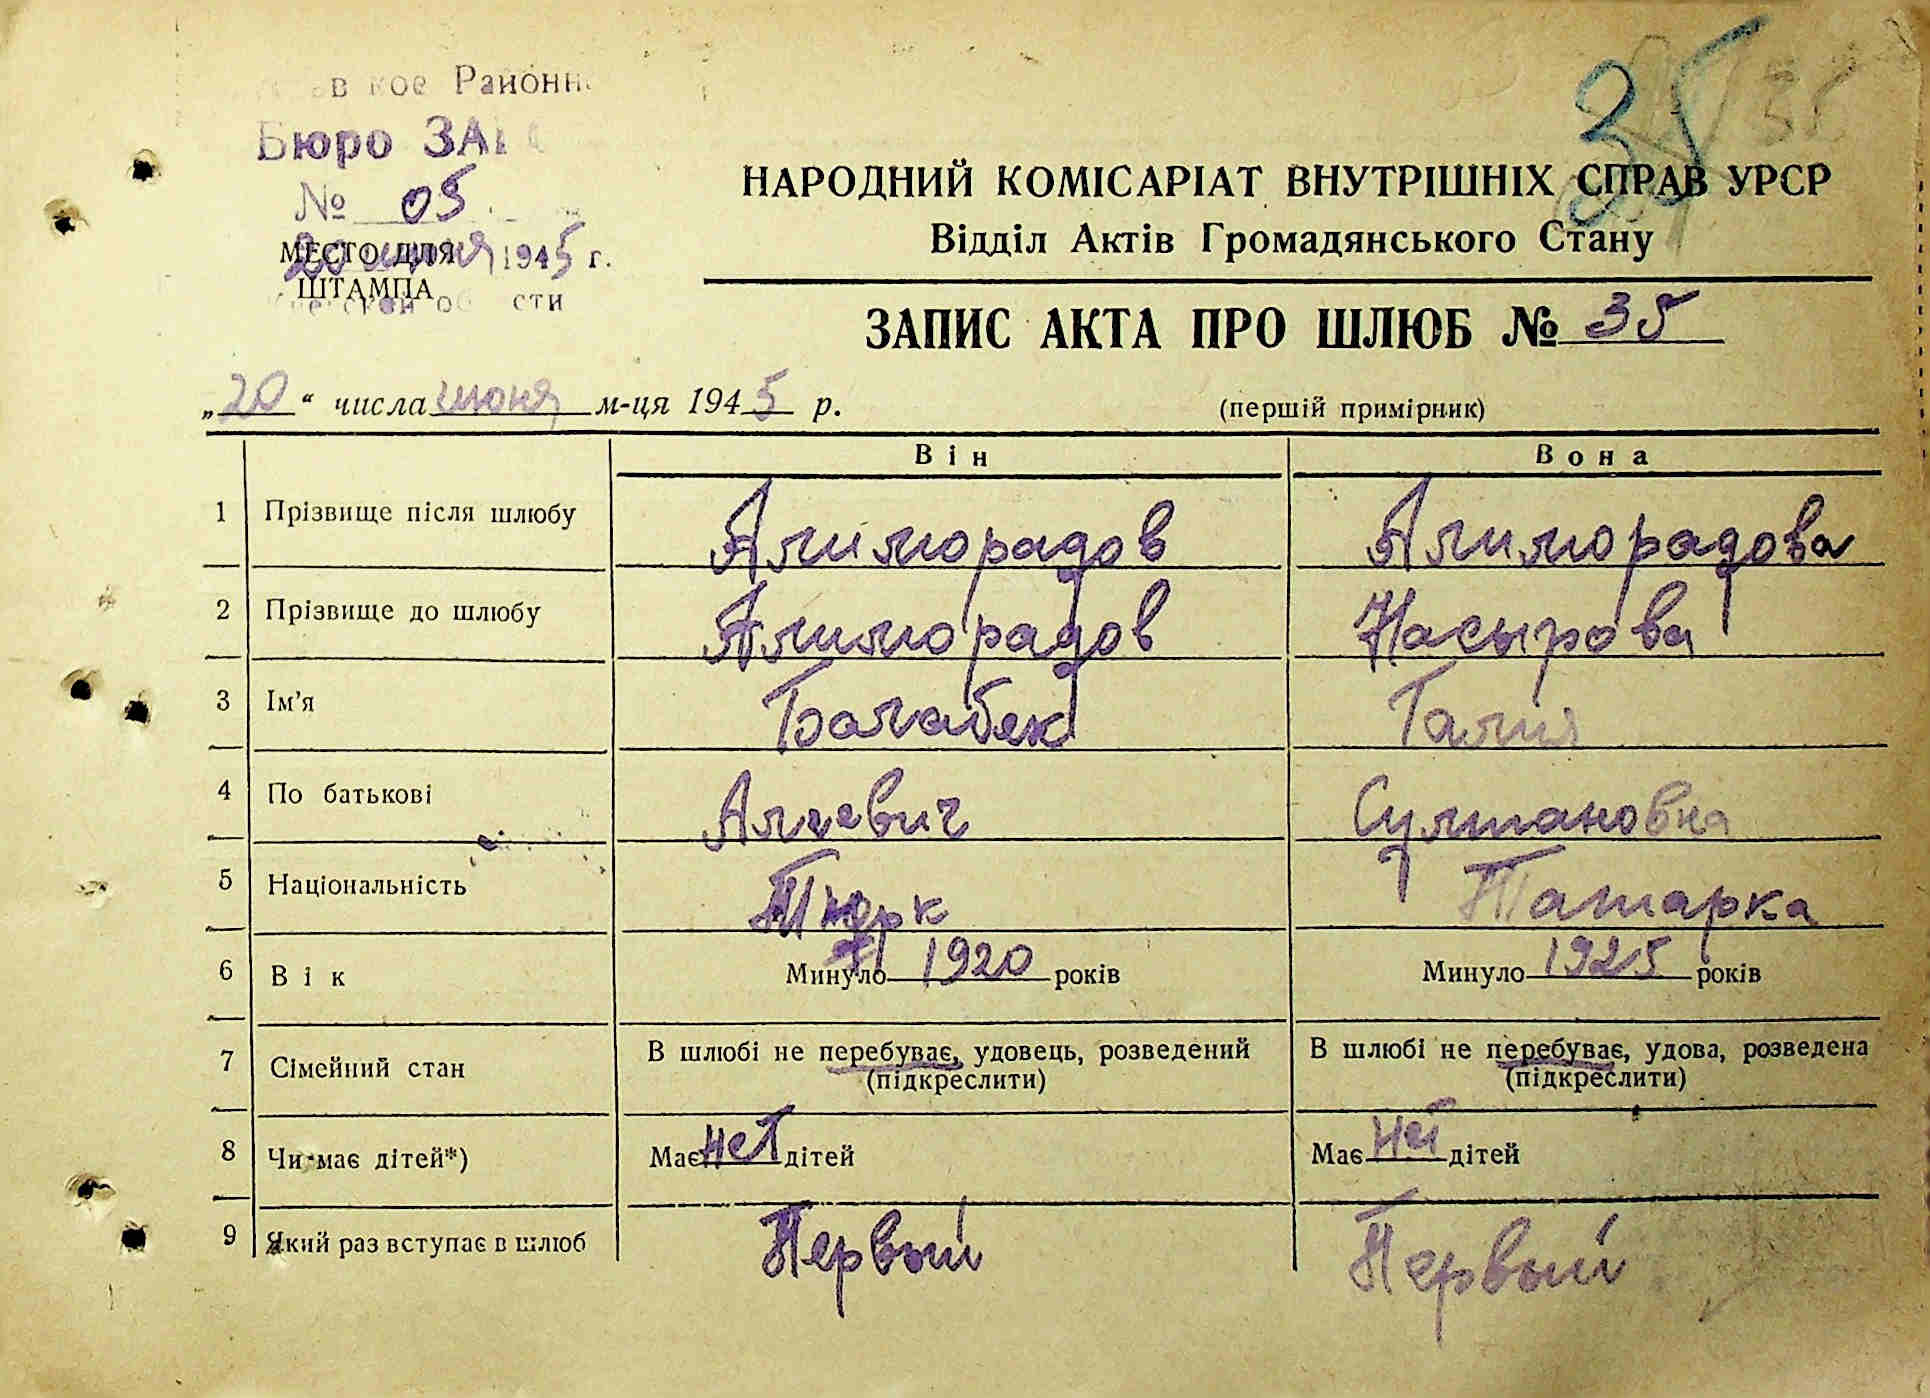 Районн
Бюро ЗАГС
№ 05
МЕСТО ДЛЯ
20 июня 1945 г.
ШТАМПА
области
35
35
НАРОДНИЙ КОМІСАРІАТ ВНУТРІШНІХ СПРАВ УРСР
Відділ Актів Громадянського Стану
ЗАПИС АКТА ПРО ШЛЮБ № 35
„20“ числа июня м-ця 1945 р.
(перший примірник)
Він Вона
1 Прізвище після шлюбу Алимородов Алимородова
2 Прізвище до шлюбу Алимородов Насырова
3 Ім'я Балабек Галия
4 По батькові Алиевич Султановна
5 Національність Тюрк Татарка
6 Вік Минуло 1920 років Минуло 1925 років
7 Сімейний стан В шлюбі не перебуває, удовець, розведений В шлюбі не перебуває, удова, розведена
(підкреслити) (підкреслити)
8 Чи має дітей*) Має нет дітей Має нет дітей
9 Який раз вступає в шлюб Первый Первый